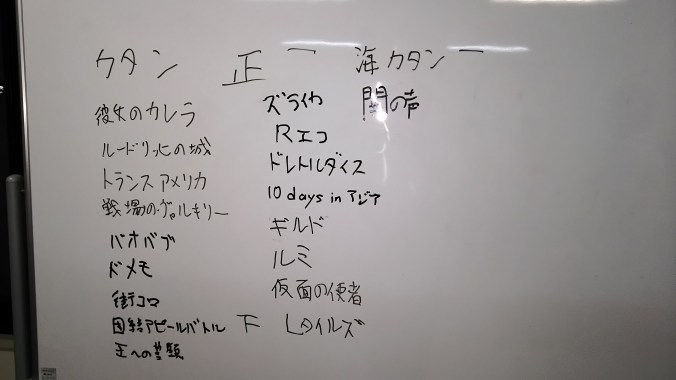 カタン 正一 海カタン 一
彼女のカレラ
ルードリッヒの城
トランスアメリカ
戦場のヴァルキリー
バオバブ
ドメモ
街コロ
団結アピールバトル 下
王への請願
ズライカ
Rエコ
ドレトルダイス
10 days in アジア
ギルド
ルミ
仮面の使者
Lタイルズ
闇の声